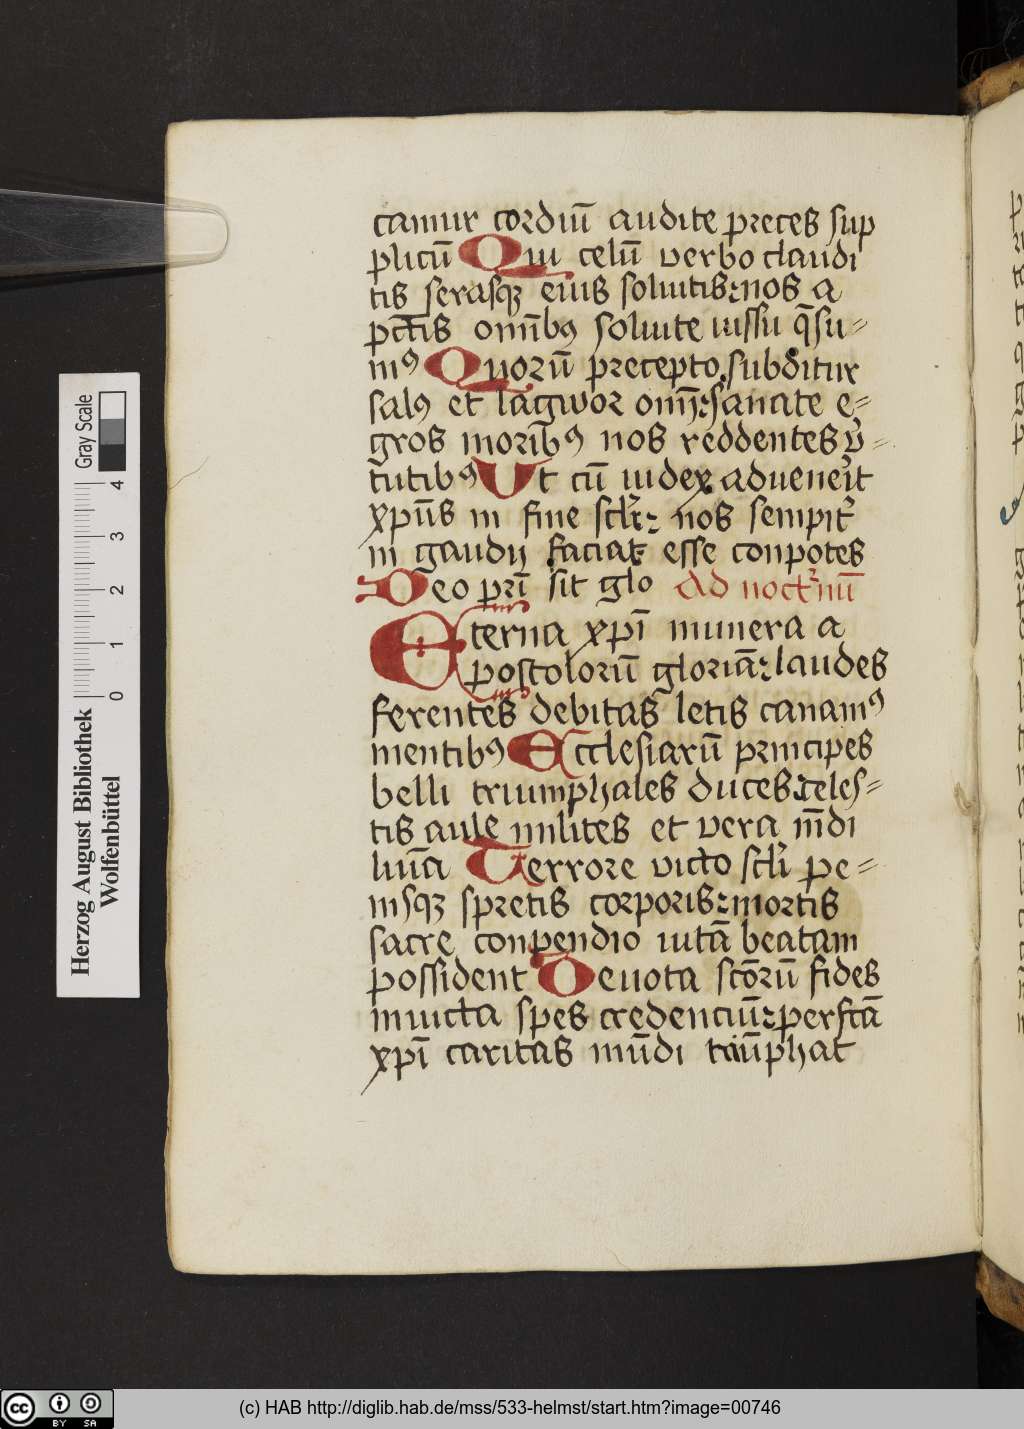 camur cordiū audite preces sup
plicū Qui celū verbo claudi
tis serasqꝫ eius soluitis: nos a
pctīs omībꝰ soluite iussu q̄su⸗
mꝰ Quorū precepto subditur
salꝰ et langwor omī: sanate e⸗
gros moribꝰ nos reddentes v̾⸗
tūtibꝰ Ut cū iudex aduene̾it
xp̄us in fine scl̾i: nos sempit̾
ni gaudij faciat esse conpotes
Deo pr̄i sit glo Ad noct̾nū
Eterna xp̄i munera a
postolorū gloriā: laudes
ferentes debitas letis canamꝰ
mentibꝰ Ecclesiarū principes
belli triumphales duces: celes⸗
tis aule milites et vera mūdi
lumīa Terrore victo scl̾i pe⸗
nisqꝫ spretis corporis: mortis
sacre conpendio uitā beatam
possident Deuota sctōrū fides
inuicta spes credenciū: perfctā
xp̄i caritas mūdi triūphat
Gray Scale
0 1 2 3 4
Herzog August Bibliothek
Wolfenbüttel
cc BY SA
(c) HAB http://diglib.hab.de/mss/533-helmst/start.htm?image=00746